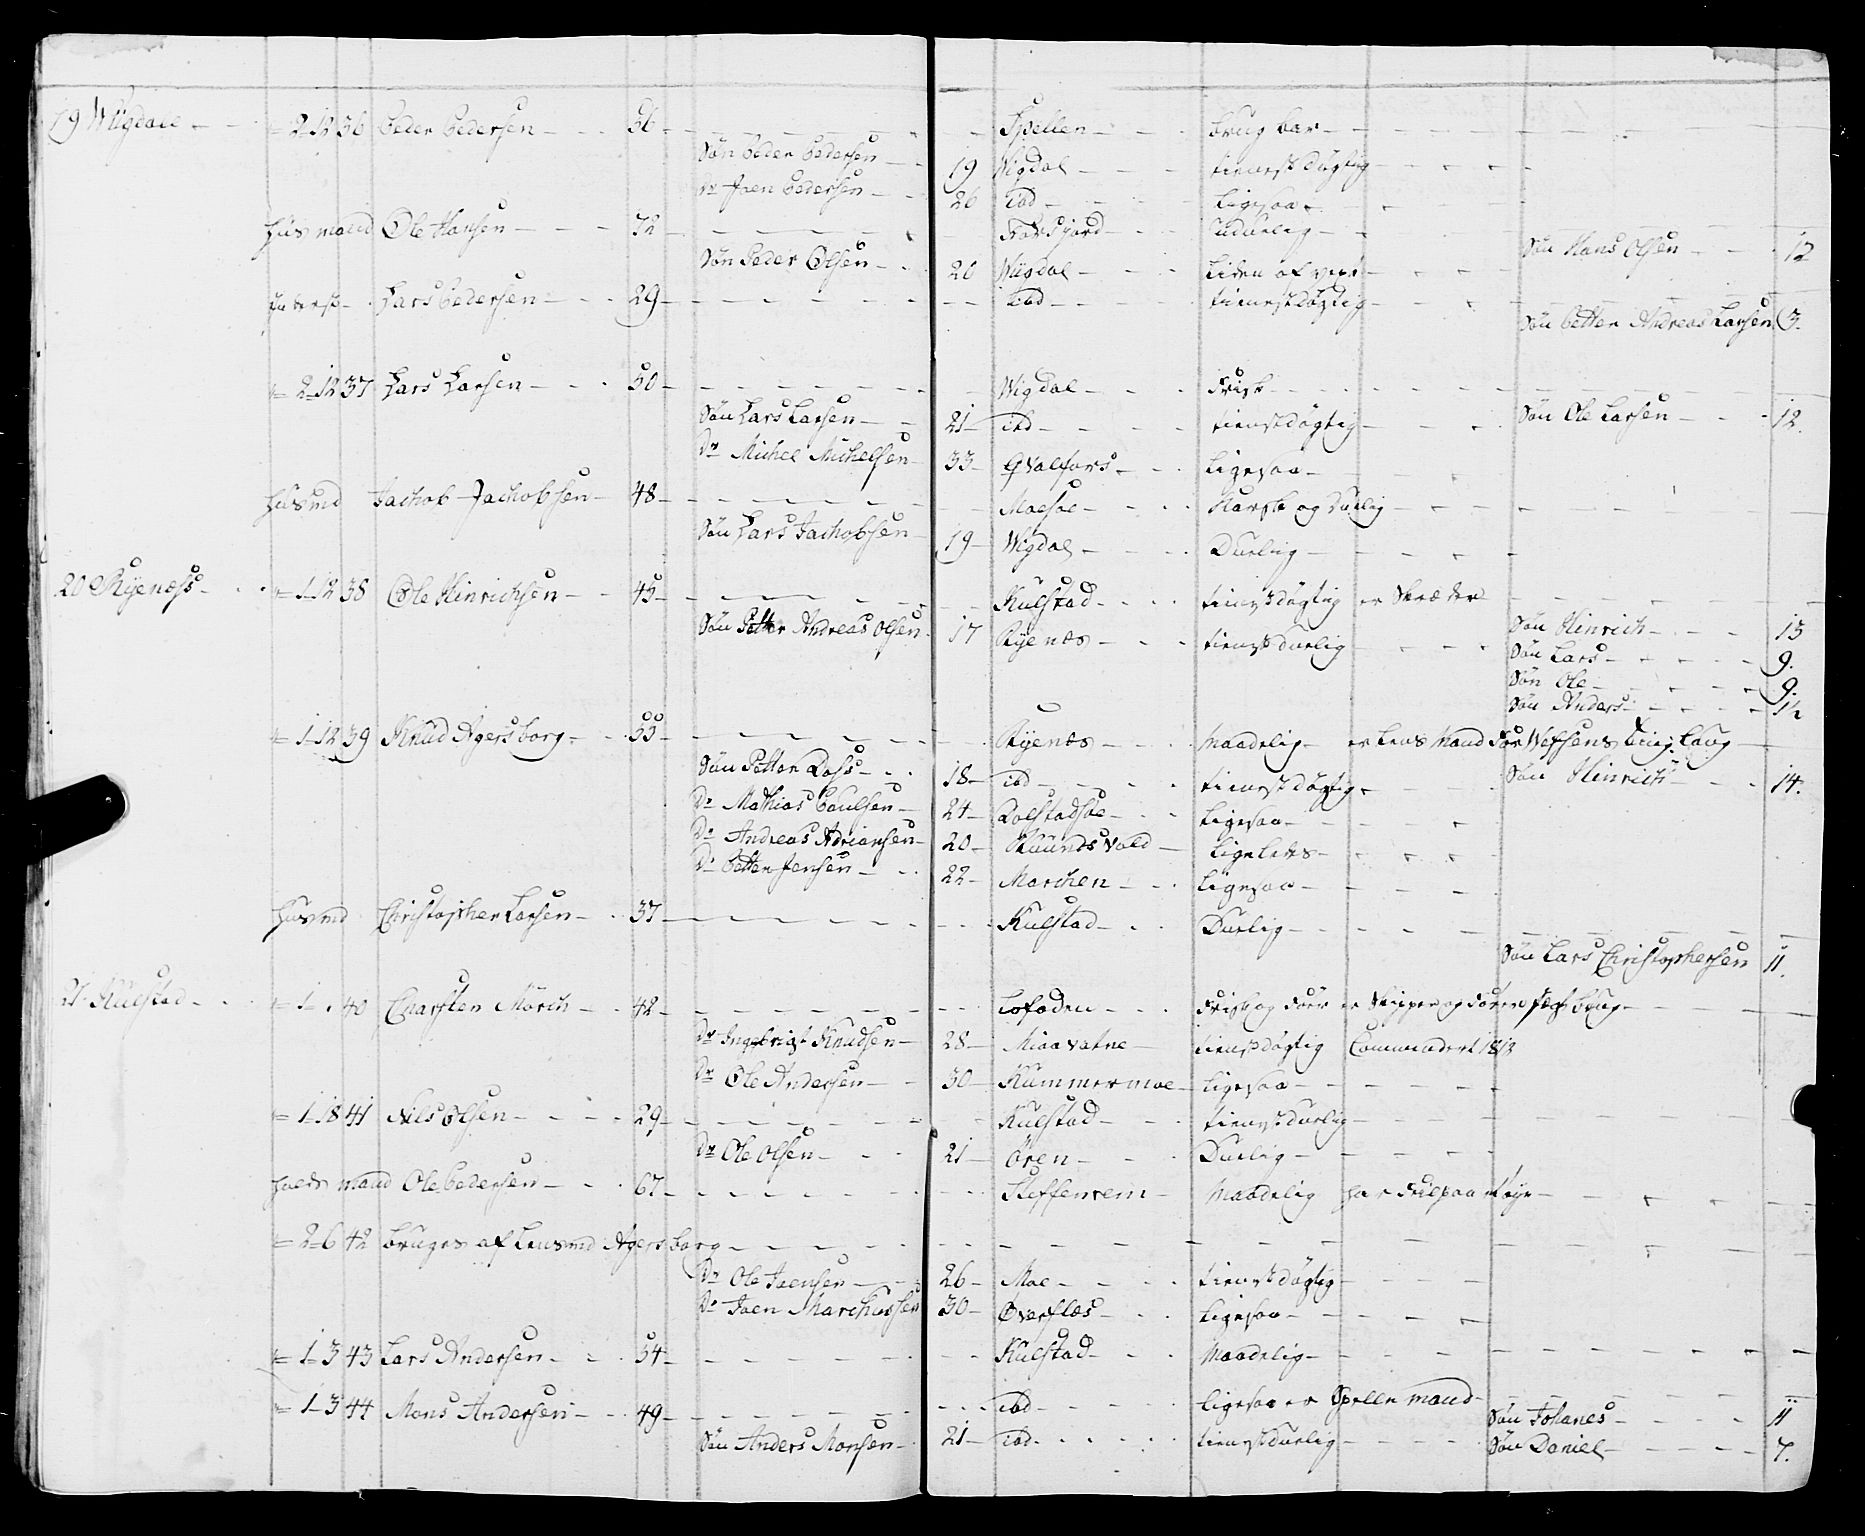 19 Wigdall - 2 - 12 36 Peder Pedersen - 56 - Spellen - brug bar
Søn Peder Pedersen - 19 Wigdal - tienestdögtig
Do Joen Pedersen - 26 ibd - Ligesaa
Huusmand Ole Hansen - 72 - Forsjord - uduelig - Søn Hans Olsen - 12
Søn Peder Olsen - 20 Wigdal - Liden af vext
Lars Pedersen - 29 - ibd - tienestdögtig
Søn Petter Andreas Larsen 3.
2 - 12 37 Lars Larsen - 50 - Wigdal - Frisk
Søn Lars Larsen - 21 - ibd - tienstdögtig - Søn Ole Larsen - 12.
Do Michel Michelsen 33 - Qvalfors - Ligesaa
Husmd Jachob Jachobsen - 48 - Moesoe - Karsk og Duelig
Søn Lars Jachobsen 19 - Wigdal - Duelig
20 Ryenæss - 1 - 12 38 Ole Hinrichsen - 45 - Kulstad - tienstdögtig er Skræder
Søn Petter Andreas Olsen 17 Ryenæs - tienstduelig - Søn Hinrich - 13
Søn Lars - 9.
Søn Ole - 9.
Søn Anders - 1½
1 - 12 39 Knud Agersborg - 55 - Ryenæs - Maadelig - er Lens Mand for Wefsens Ting Laug
Søn Petter Dass - 18 - ibd - tienstdögtig - Søn Hinrich - 14.
Do Mathias Poulsen - 24 - Dolstadsoe - Ligesaa
Do Andreas Adriansen - 20 - Ruundsvold - Ligeledes
Do Petter Jensen - 22 - Marchen - Ligesaa
Husmd Christopher Larsen - 37 - Kulstad - Duelig
Søn Lars Christophersen 11.
21 Kulstad - 1 - 40 Charsten Mörch - 42 - Lofoden - Frisk og Före er Skipper og förer Jægt brug
Do Ingebrigt Knudsen - 28 - Miaavatne - tienstdögtig Commandert 1813
Do Ole Andersen - 30 - Kummermoe - Ligesaa
1 - 18 41 Nils Olsen - 29 - Kulstad - tienstduelig
Do Ole Olsen - 21 - Ören - Duelig
Huusmand Ole Pedersen - 67 - Steffenrem - Maadelig har feil paa et øye
2 - 6 42 bruges af Lensmd Agersborg
Do Ole Joensen - 26 - Moe - tienstdögtig
Do Joen Marchussen 30 - Overflæs - Ligesaa
1 - 3 43 Lars Andersen - 54 - Kulstad - Maadelig
1 - 3 44 Mons Andersen - 49 - ibd - Ligesaa er Spellemand
Søn Johanes - 11
Søn Anders Monsen - 21 - ibd - tienstduelig - Søn Daniel - 7.